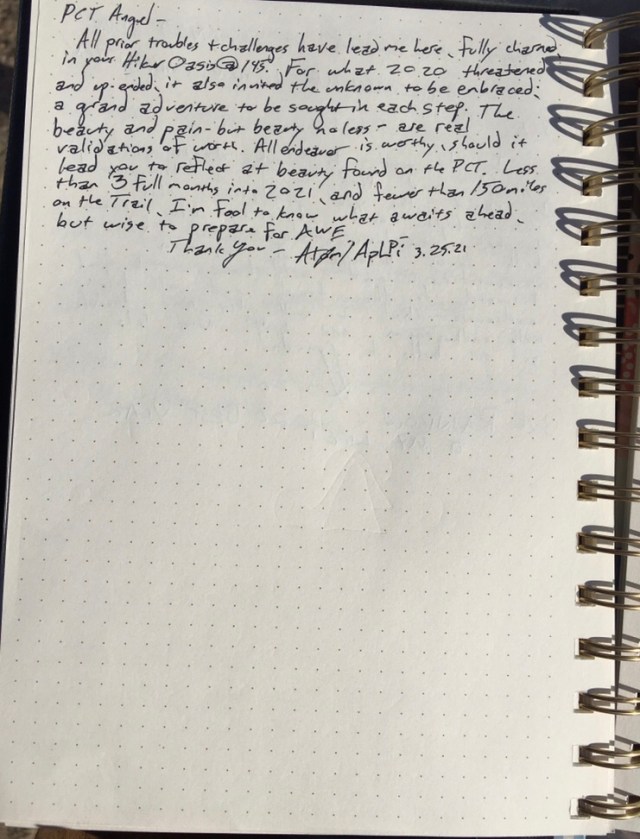 PCT Angel -
All prior troubles + challenges have lead me here, fully charmed
in your Hiker Oasis @ 145. For what 2020 threatened
and up-ended, it also invited the unknown to be embraced;
a grand adventure to be sought in each step. The
beauty and pain - but beauty no less - are real
validations of worth. All endeavor is worthy, should it
lead you to reflect at beauty found on the PCT. Less
than 3 full months into 2021, and fewer than 150 miles
on the Trail, I'm fool to know what awaits ahead,
but wise to prepare for AWE
Thank you - 3.25.21